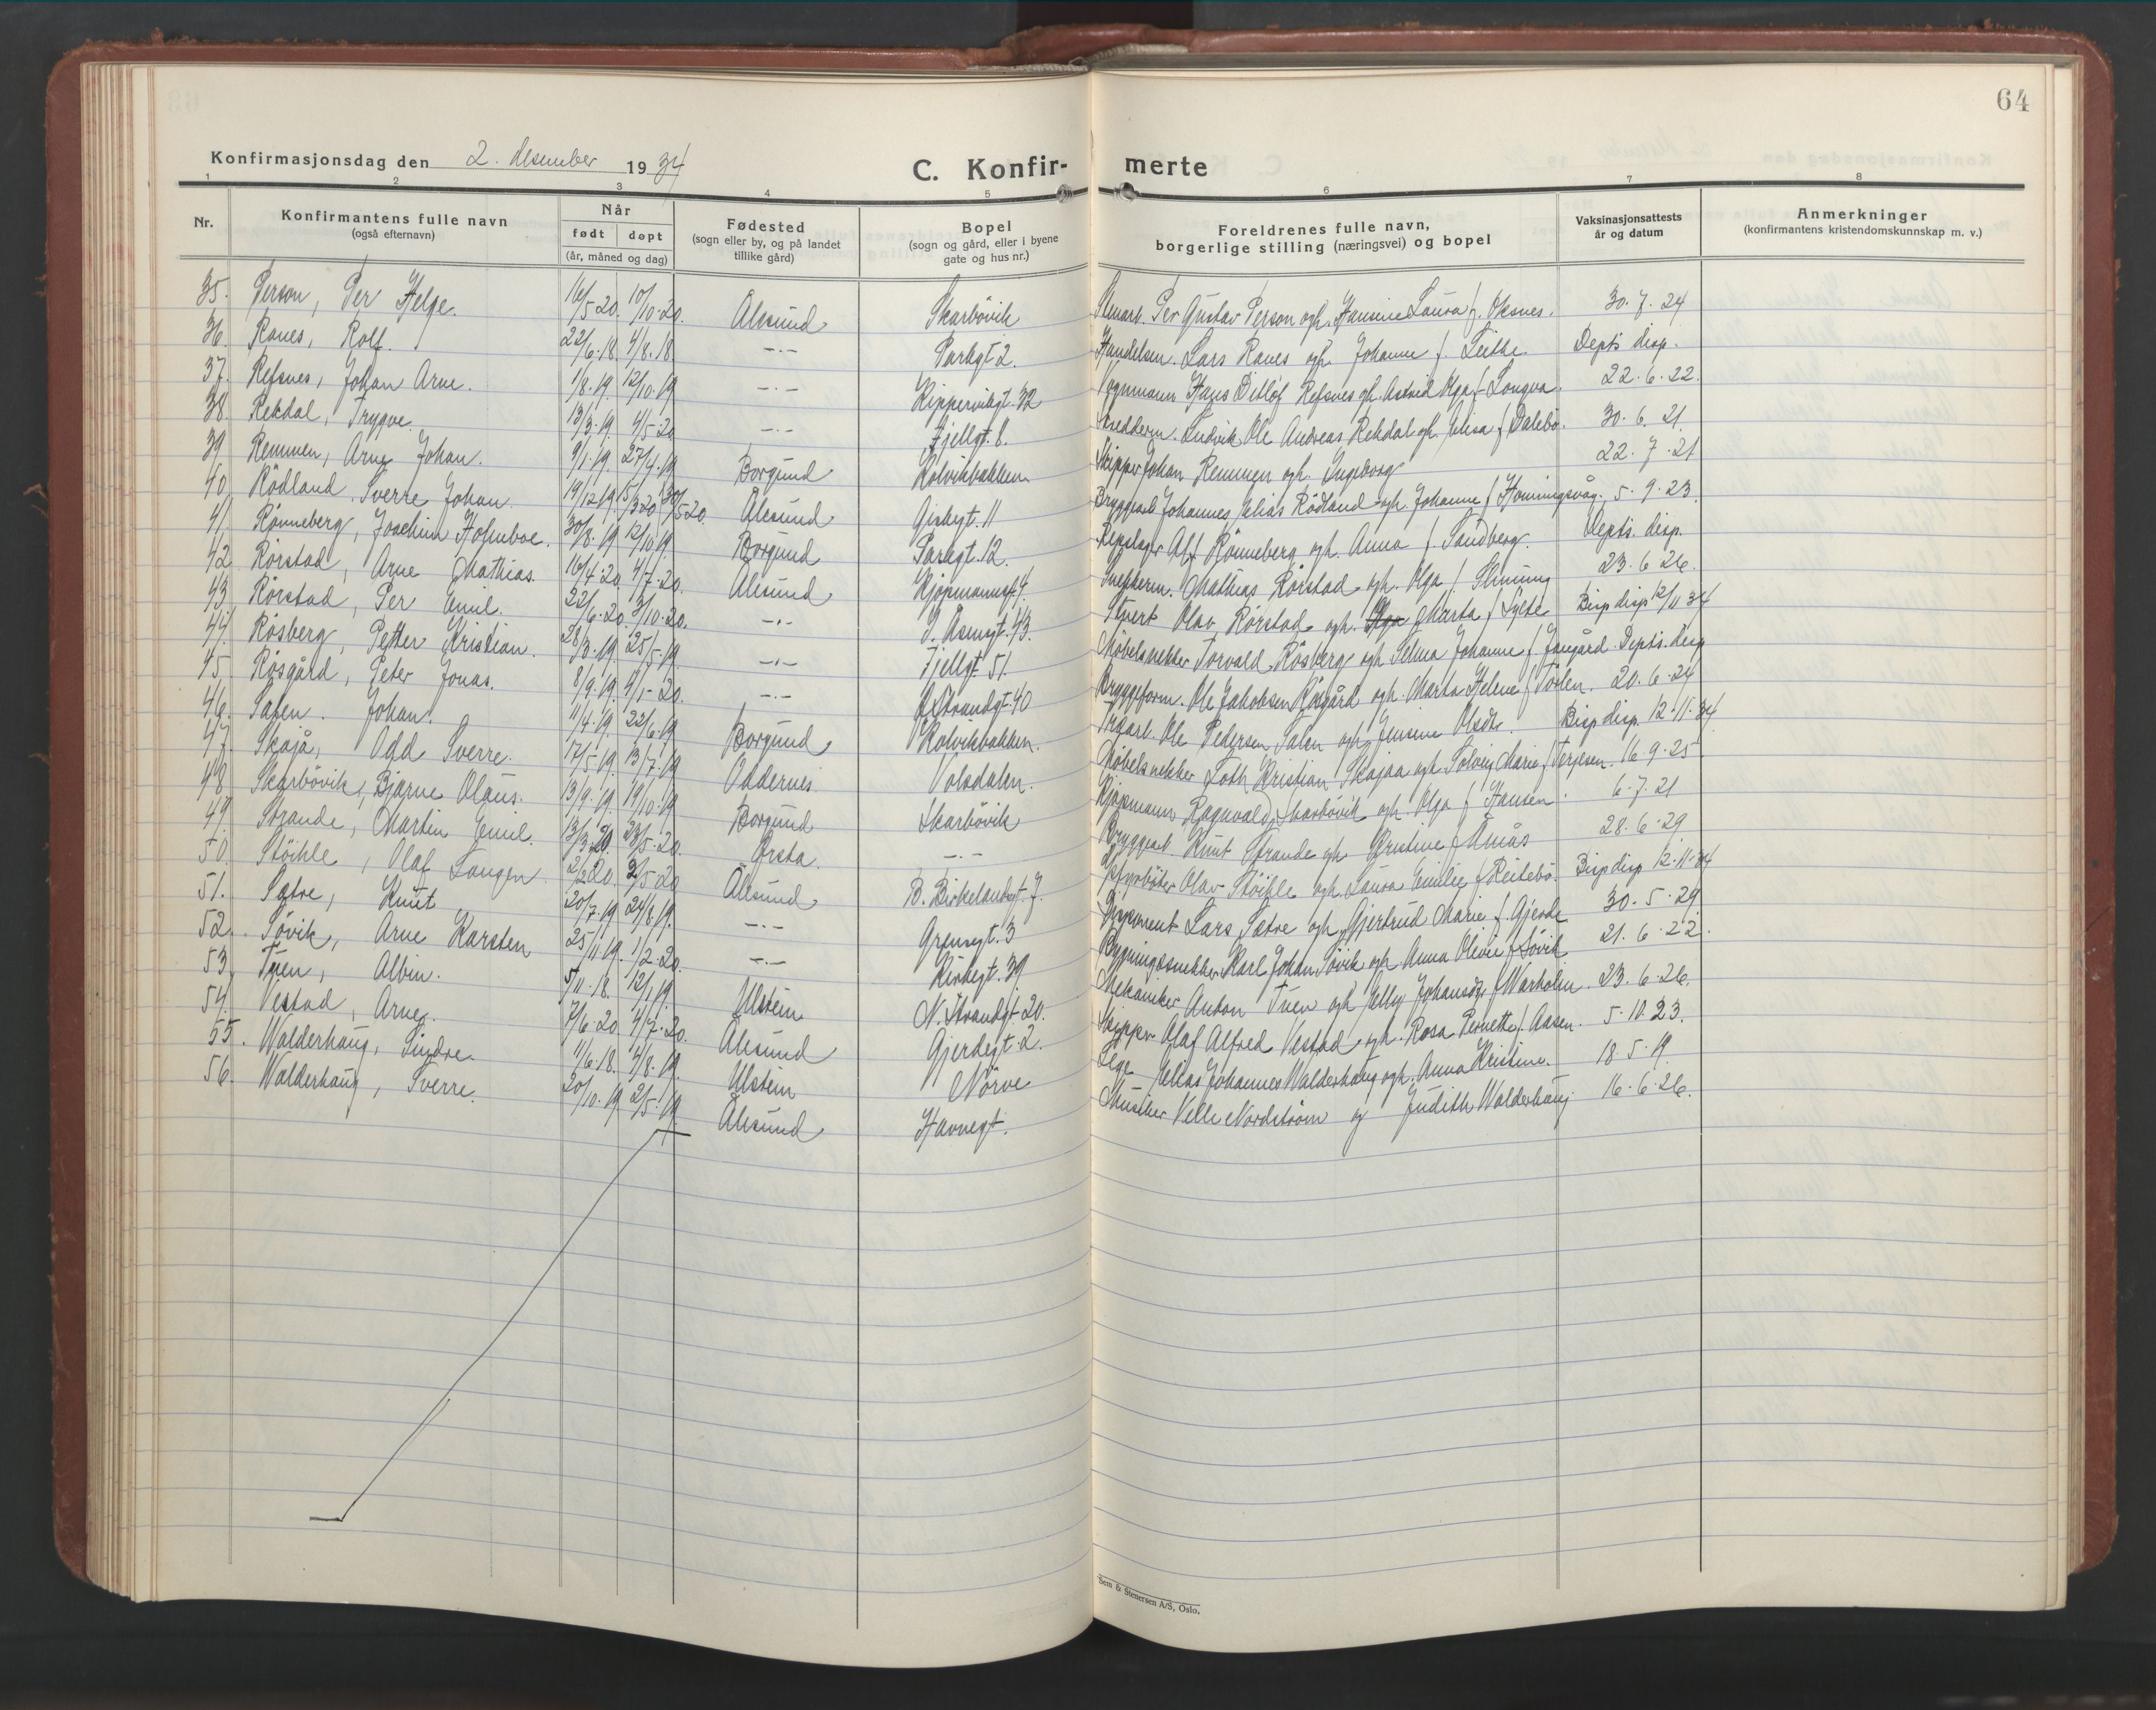 64
Konfirmasjonsdag den 2. desember 1934
C. Konfir-merte
1 2 3 4 5 6 7 8
Nr.
Konfirmantens fulle navn
(også efternavn)
Når
født døpt
(år, måned og dag)
Fødested
(sogn eller by, og på landet
tillike gård)
Bopel
(sogn og gård, eller i byene
gate og hus nr.)
Foreldrenes fulle navn,
borgerlige stilling (næringsvei) og bopel
Vaksinasjonsattests
år og datum
Anmerkninger
(konfirmantens kristendomskunnskap m. v.)
35. Person, Per Helge. 16/5-20. 10/10-20. Ålesund Skarbövik Per Gustav Person og h. Hansine Laura f. Oksnes. 30.7.24
36. Ranes, Rolf. 22/6.18. 4/8.18 -.- Parkgt 2. Handelsm. Lars Ranes og h. Johanne f. Leithe. Dept's disp.
37. Refsnes, Johan Arne. 1/8.19. 12/10.19 -.- Kippervikgt. 32 Vognmann Hans Ditlof Refsnes og h. Astrid Olga f. Longva. 22.6.22.
38. Rekdal, Trygve. 13/3.19. 4/5-20 -.- Fjellgt. 8. Skredderm. Ludvik Ole Andreas Rekdal og h. Elisa f. Dalebö. 30.6.21.
39 Remmen, Arne Johan. 9/1.19. 27/4.19 Borgund Kolvikbakken Skipper Johan Remmen og h. Ingeborg 22.7.21
40. Rödland, Sverre Johan. 19/12.19. 15/3-20 30/5-20. Ålesund Gisbgt. 11 Bryggearb Johannes Elias Rödland og h. Johanne f. Honningsvåg. 5.9.23.
41. Rönneberg, Joachim Holmboe. 30/8.19 12/10.19. Borgund Parkgt. 12. Repslager Alf Rönneberg og h. Anna f. Sandberg. Dept's. disp.
42 Rörstad, Arne Mathias. 16/4-20. 4/7-20. Ålesund Kjöpmannsgt 4. Snekkerm. Mathias Rörstad og h. Olga f. Flemung 23.6 26.
43. Rörstad, Per Emil. 22/6-20. 3/10-20. -.- J. Aasengt. 43. Olav Rörstad og h. Olga Marta f. Sylte Bisp disp 12/11 34
44. Rösberg, Petter Kristian. 28/3.19. 25/5.19. -.- Fjellgt. 51. Möbelsnekker Torvald Rösberg og h Selma Johanne f. Jangård. Dept's. disp
45. Rösgård, Peter Jonas. 8/9.19. 4/1-20. -.- Ö. Strandgt. 40 Bryggeform. Ole Jakobsen Rösgård og h. Marta Helene f. Törlen. 20.6.24
46. Salen. Johan. 11/4.19. 22/6.19 Borgund Kolvikbakken. Ole Pedersen Salen og h Jensine Olsdt. Bisp disp. 12.11.34
47. Skajå, Odd Sverre. 17/5.19. 13/7.19 Oddernes Volsdalen. Möbelsnekker Loth Kristian Skajaa og h. Solveig Marie f. Terjesen. 16.9.25
48 Skarbövik, Bjarne Olaus. 13/9.19. 19/10.19 Borgund Skarbövik Kjöpmann Ragnvald Skarbövik og h. Olga f. Hansen. 6.7.21
49. Strande, Martin Emil. 13/3.20. 23/5-20. Ørsta. -.- Bryggearb. Knut Strande og h. Kristine f. Åmås 28.6.29
50. Stöihle, Olaf Langen. 2/2 20. 2/5-20 Ålesund B. Birkelandsgt. 7. Fyrböter Olav Stöihle og h. Laura Emilie f. Reitebö. Bisp disp 12.11.34
51. Sætre, Knut 20/7.19 24/8.19. -.- Grensegt. 3 Lars Sætre og h Gjertrud Marie f. Gjerde 30.5.29
52. Sövik, Arne Karsten 25/11 19. 1/2-20. -.- Kirkegt. 39. Bygningssnekker Karl Johan Sövik og h. Anna Olivie f. Sövik 21.6.22.
53. Tuen, Albin. 5/11.18. 12/1.19. Ulstein N. Strandgt 20. Mekaniker Anton Tuen og h Elly Johansdt f. Warholm. 23.6.26.
54. Vestad, Arne. 7/6-20. 4/7-20. Ålesund Gjerdegt. 2. Skipper Olaf Alfred Vestad og h. Rosa Pernette f. Aasen. 5.10.23.
55. Walderhaug, Sindre. 11/6.18. 4/8.19. Ulstein Nörve Elias Johannes Walderhaug og h. Anna Kristine. 18.5.19
56. Walderhaug, Sverre. 20/10.19. 2/5.19 Ålesund Havnegt. Musiker Velle Nordström og Judith Walderhaug 16.6.26.
Sem & Stenersen A/S, Oslo.